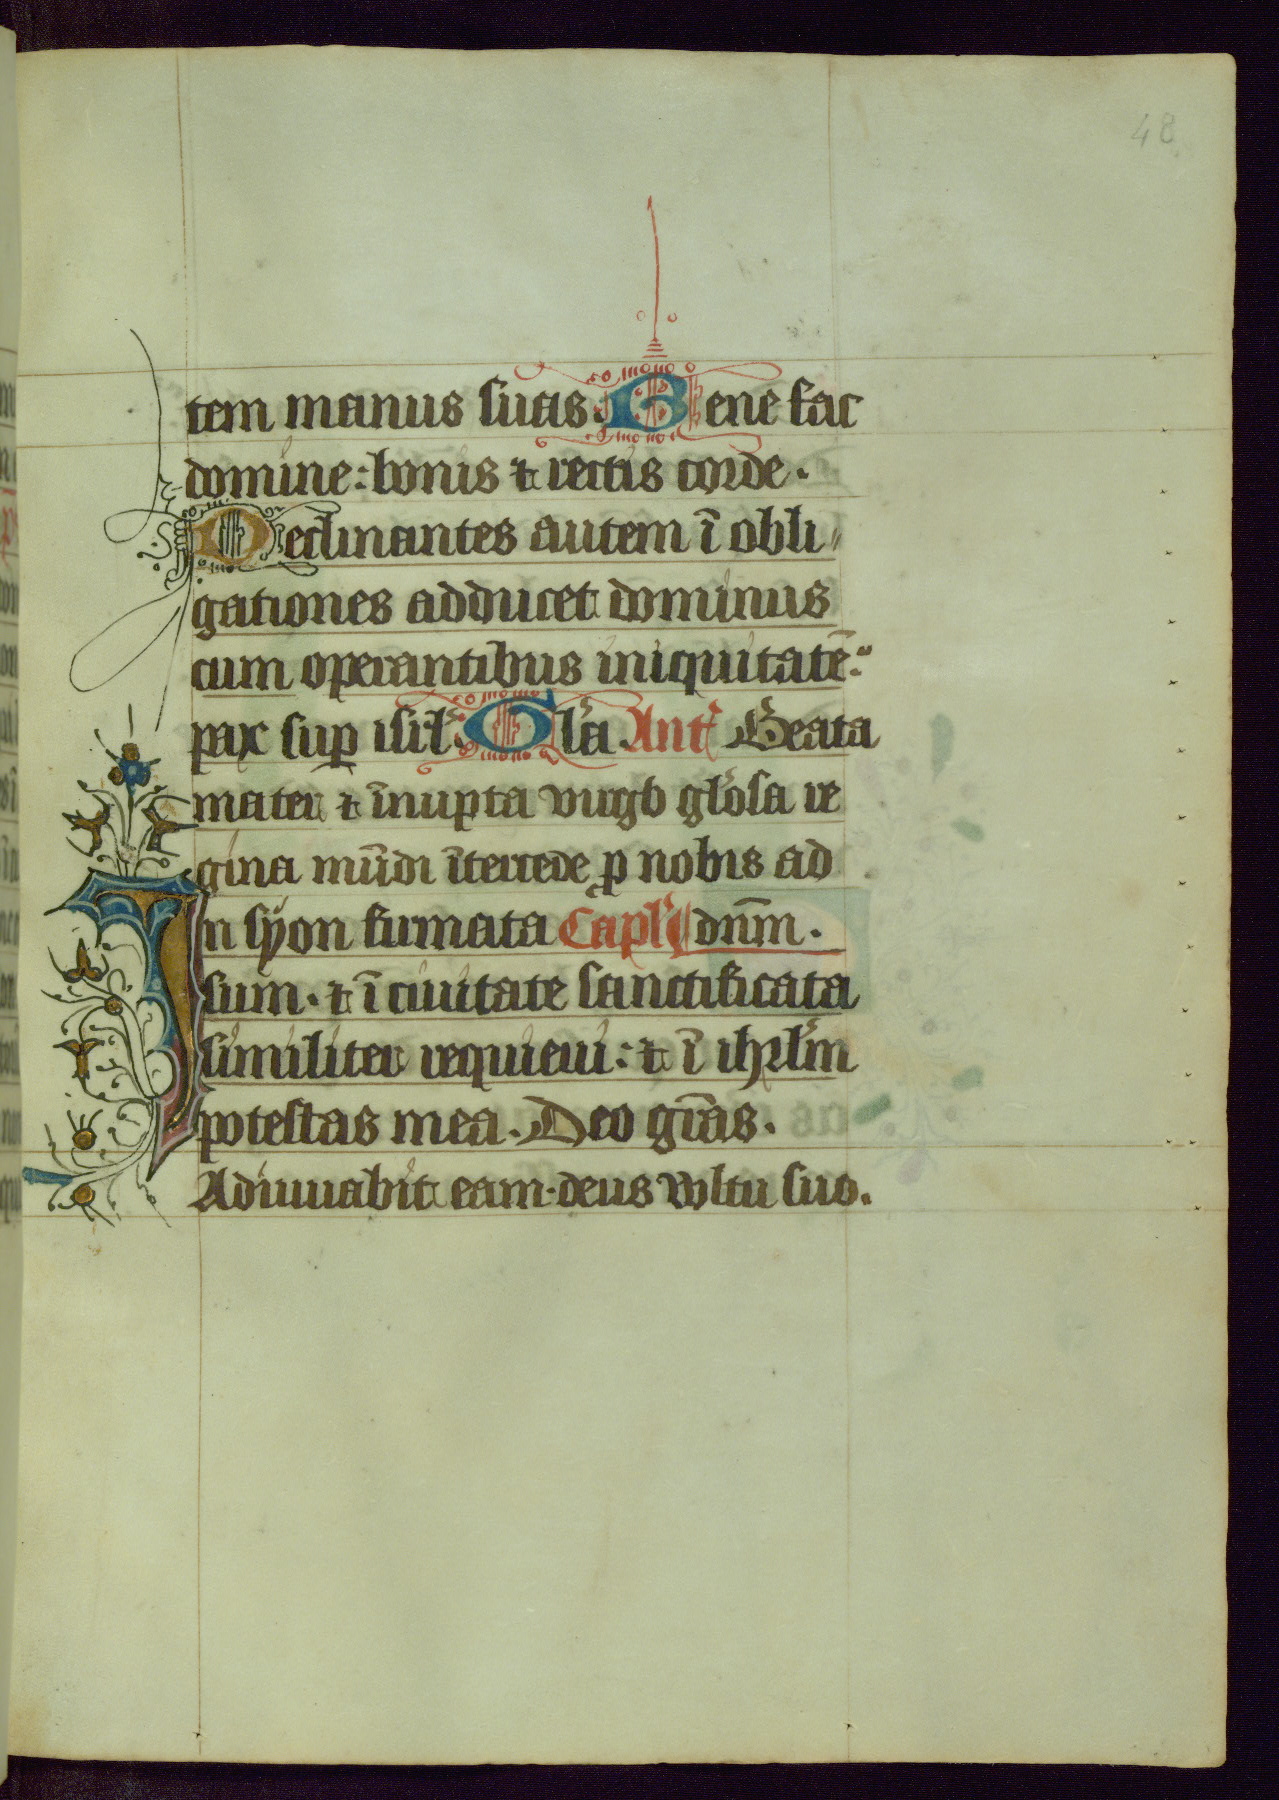 48
tem manus suas. Bene fac
domine: bonis ⁊ rectis corde.
Declinantes autem ī obli〃
gationes adducet dominus
cum operantibus iniquitatē:
pax suꝑ isrl. Gla. Ant Beata
mater ⁊ īnupta virgo glosa re
gina mūdi ītercede ꝓ nobis ad
In syon firmata Capl dnm̄.
sum. ⁊ ī ciuitate sanctificata
similiter requieui: ⁊ ī ihrlm
potestas mea. Deo grās.
Adiuuabit eam deus vultu suo.